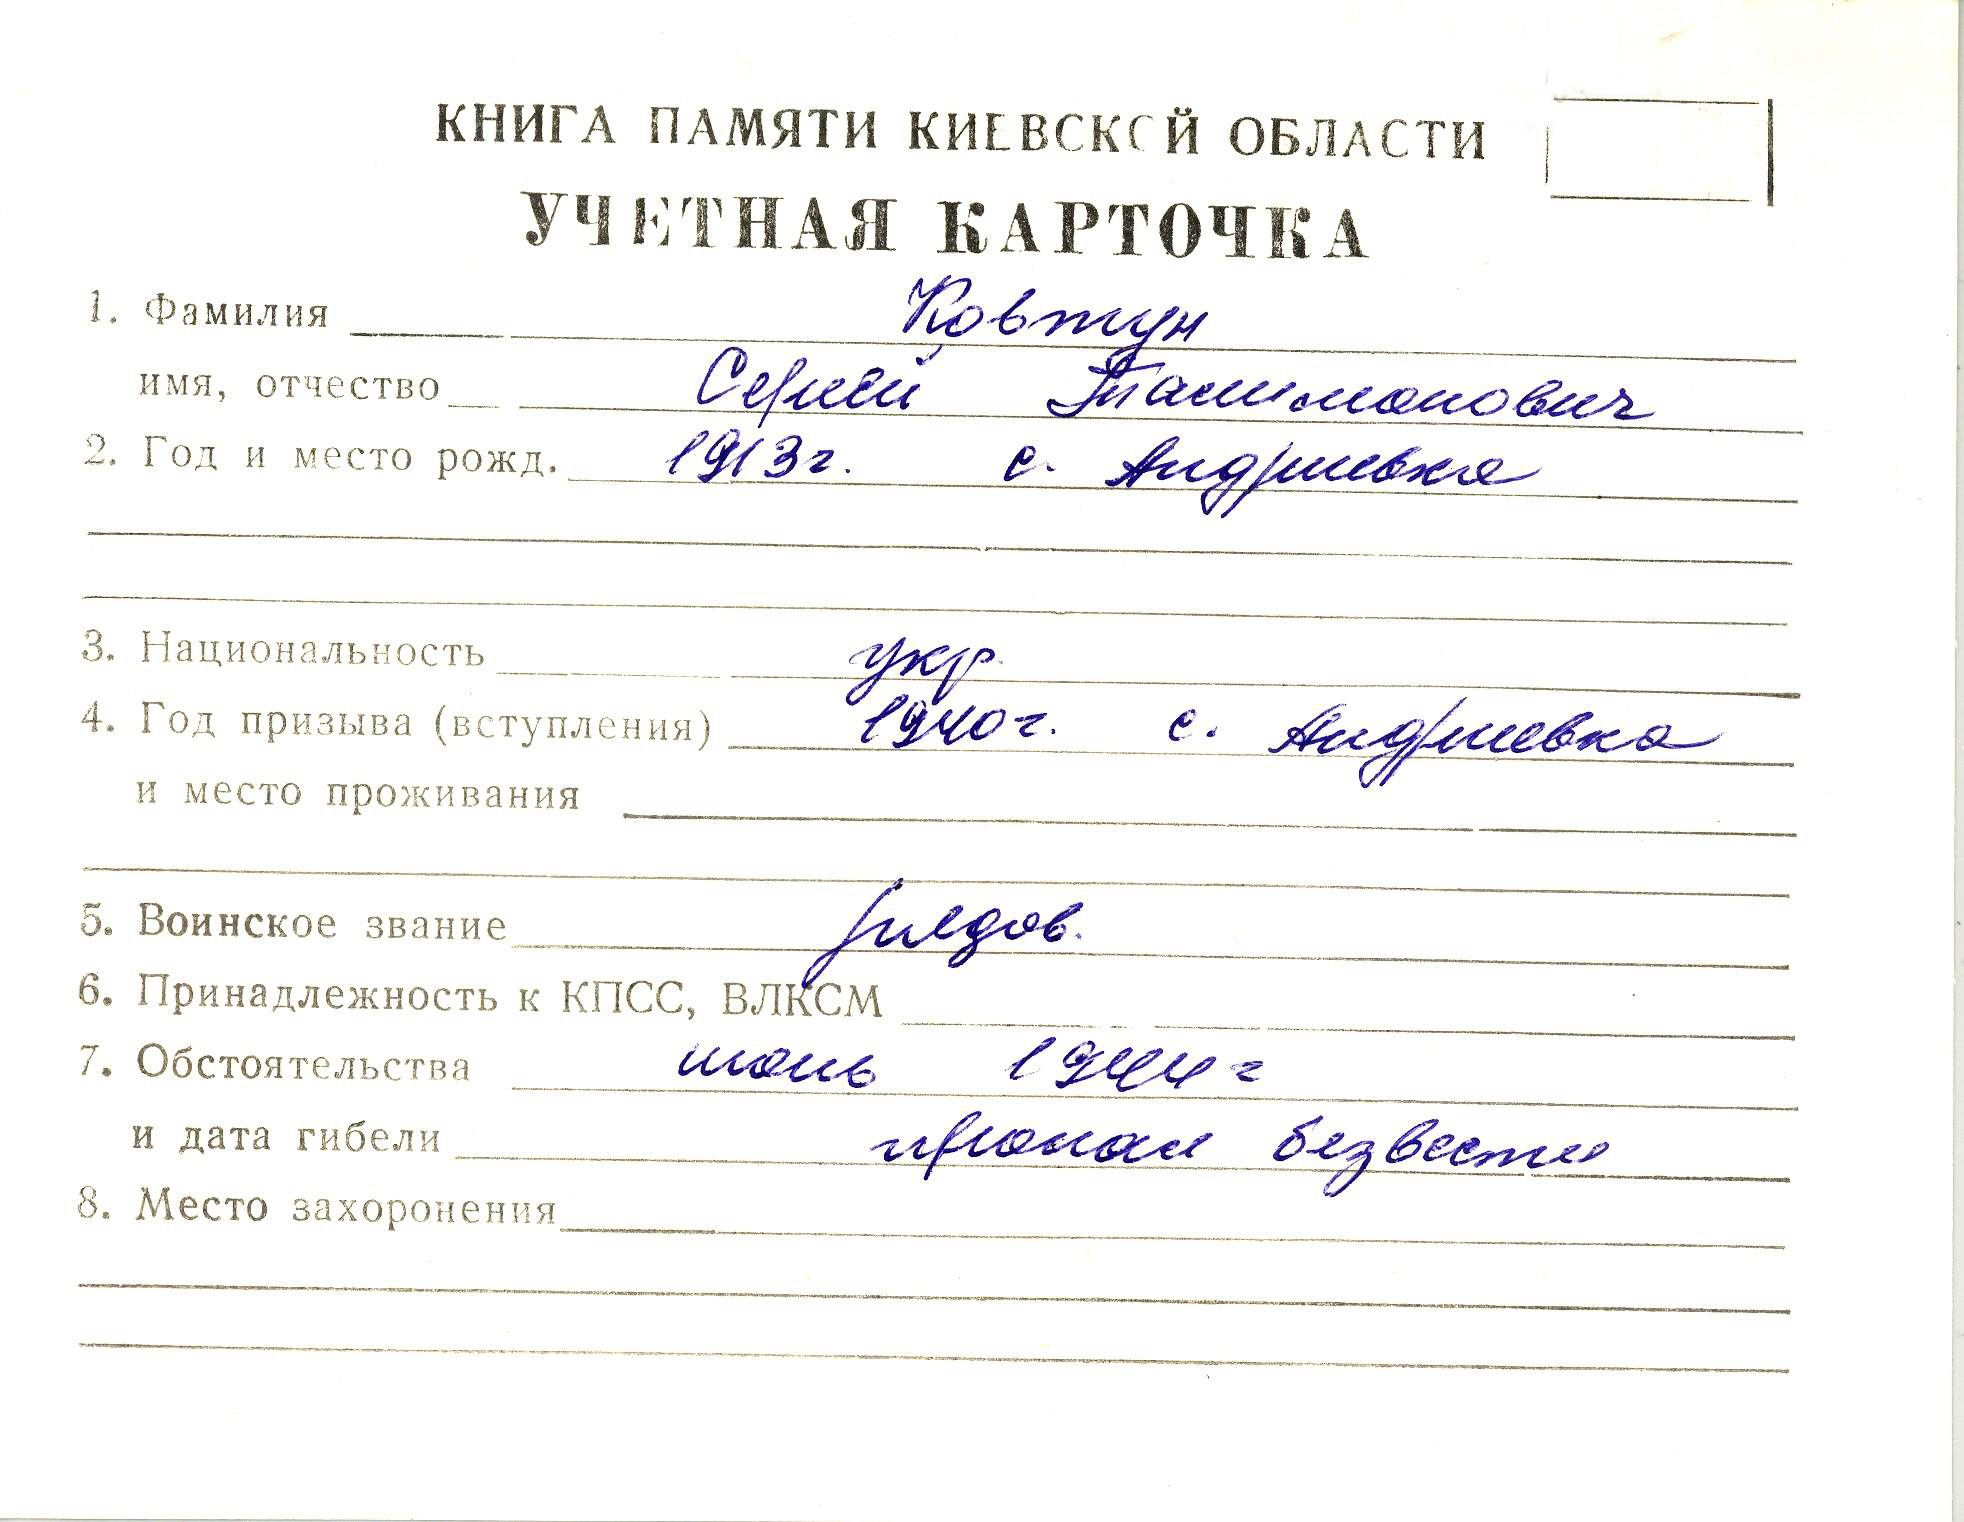 КНИГА ПАМЯТИ КИЕВСКОЙ ОБЛАСТИ
УЧЕТНАЯ КАРТОЧКА
1. Фамилия Ковтун
имя, отчество Сергей
2. Год и место рожд. 1913г. с. Андриевка
3. Национальность укр.
4. Год призыва (вступления) 1940г. с. Андриевка
и место проживания
5. Воинское звание рядов.
6. Принадлежность к КПСС, ВЛКСМ
7. Обстоятельства июнь 1944г
и дата гибели пропал безвести
8. Место захоронения